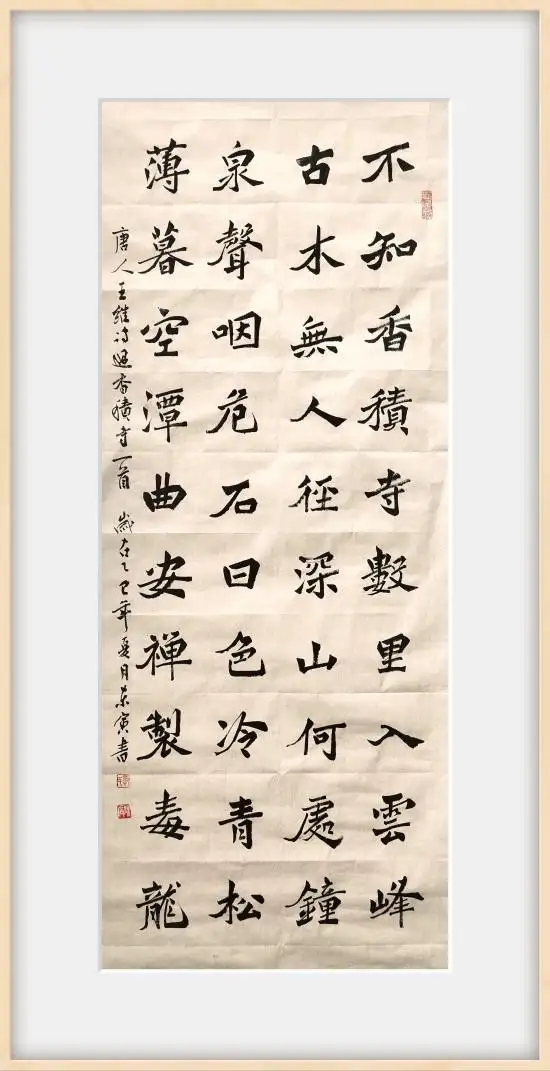 不知香積寺數里入雲峰
古木無人徑深山何處鐘
泉聲咽危石日色冷青松
薄暮空潭曲安禅製毒龍
唐人王維詩過香積寺一首 歲在乙巳年夏月東寅書